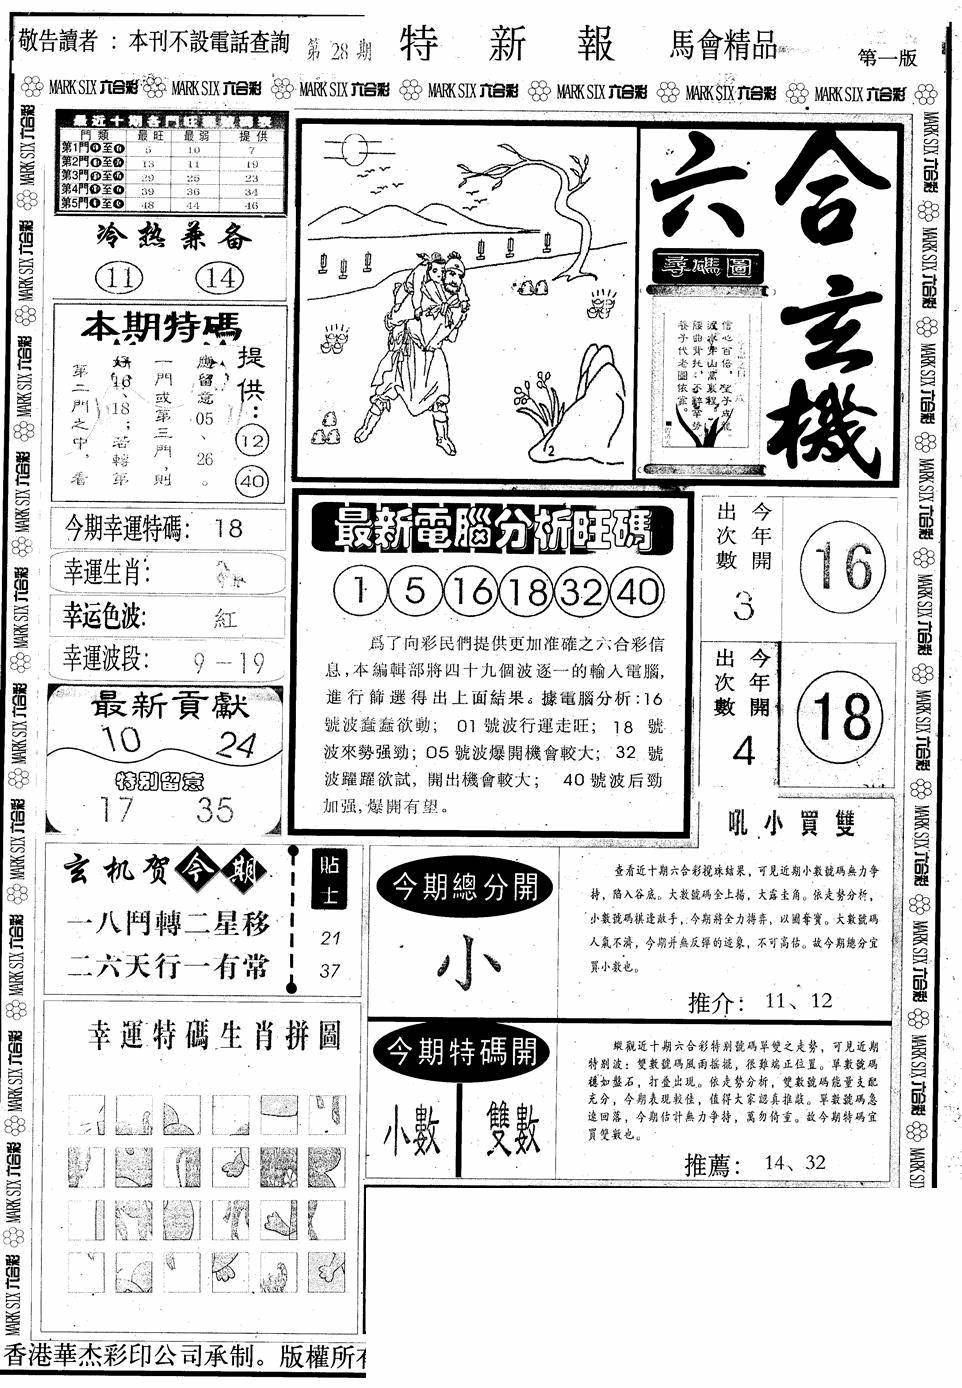 敬告讀者：本刊不設電話查詢
第28期
特新報
馬會精品
第一版
MARK SIX 六合彩 MARK SIX 六合彩 MARK SIX 六合彩 MARK SIX 六合彩 MARK SIX 六合彩 MARK SIX 六合彩 MARK SIX 六合彩
門類 最旺 最弱 提供
第1門 至 5 10 7
第2門 至 13 11 19
第3門 至 29 25 23
第4門 至 39 36 34
第5門 至 48 44 46
冷热兼备
11 14
本期特碼
提供：
12
40
應留意05、26。
一門或第三門，則
好16、18；若轉第
第二門之中，看
今期幸運特碼： 18
幸運生肖：
幸运色波： 紅
幸運波段： 9－19
最新貢獻
10 24
特别留意
17 35
六合玄機
尋碼圖
養子代老圖依靠。
2
最新電腦分析旺碼
1 5 16 18 32 40
爲了向彩民們提供更加准確之六合彩信
息,本編輯部將四十九個波逐一的輸入電腦,
進行篩選得出上面結果。據電腦分析:16
號波蠢蠢欲動；01號波行運走旺；18 號
波來勢强勁；05號波爆開機會較大；32 號
波躍躍欲試，開出機會較大； 40號波后勁
加强,爆開有望。
今年開
出次數
3
16
今年開
出次數
4
18
吼小買雙
玄机贺今期
一八鬥轉二星移
二六天行一有常
貼士
21
37
今期總分開
小
查看近十期六合彩攪珠結果，可見近期小數號碼無力争
持，陷入谷底。大数號碼全上揚，大露圭角。依走勢分析，
小數號碼棋逢敵手，今期將全力搏弈，以國奪寶。大數號碼
人氣不濟，今期并無反彈的迹象，不可高估。故今期總分宜
買小数也。
推介：11、12
今期特碼開
小數 雙數
縱觀近十期六合彩特别號碼單雙之走勢，可見近期
特别波：雙數號碼風雨摇摇，很難端正位置。單數號碼
穩如盤石，打叠出现。依走勢分析，雙數號碼能量支配
充分，今期表現較佳，值得大家認真推敲。單數號碼急
速回落，今期估計無力争持，萬勿倚重。故今期特碼宜
買雙數也。
推薦：14、32
幸運特碼生肖拼圖
香港華杰彩印公司承制。版權所